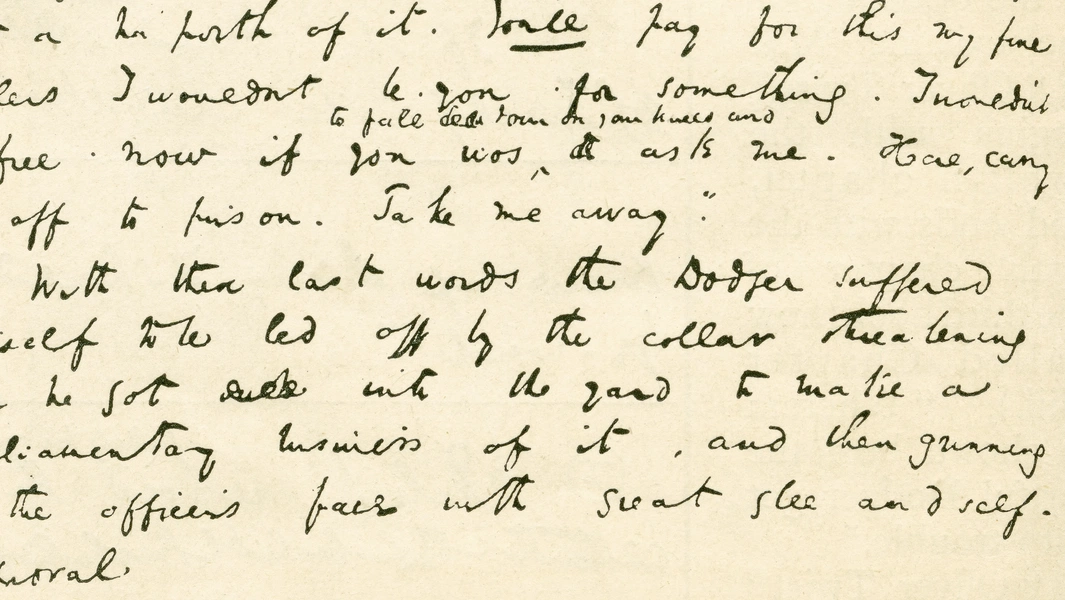 a ha'porth of it. You'll pay for this my fine
I wouldn't be you for something. I wouldn't
to fall down on your knees and
free now if you was, ask me. Here, carry
off to prison. Take me away."
With these last words the Dodger suffered
self to be led off by the collar threatening
he got into the yard to make a
liamentary business of it, and then grinning
the officers face with great glee and self-